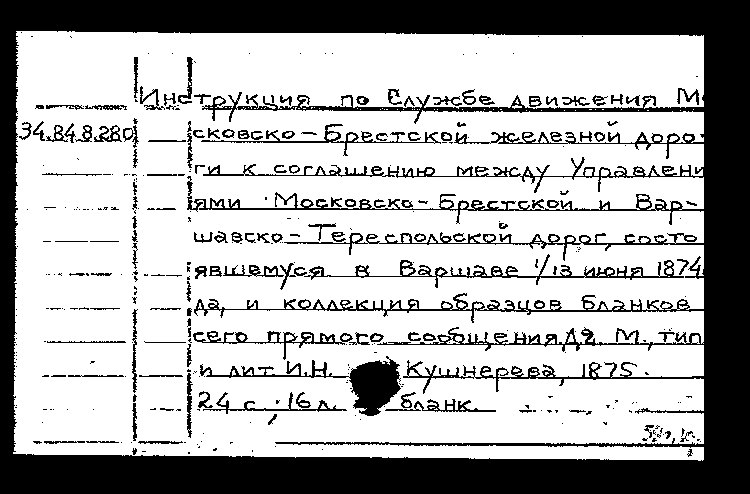 Инструкция по Службе движения М
34.84.8.280 сковско-Брестской железной доро-
ги к соглашению между Управлени
ями Московско-Брестской и Вар-
шавско-Тереспольской дорог, состо
явшемуся в Варшаве 1/13 июня 1874
да, и коллекция образцов бланков
сего прямого сообщения. М., тип
и лит И.Н. Кушнерева, 1875.
24 с; 16 л. бланк.